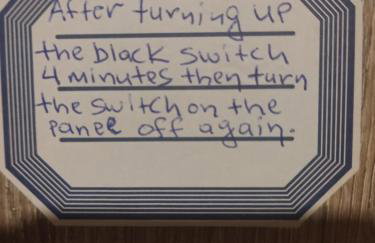 After turning up
the black switch
4 minutes then turn
the switch on the
panel off again.